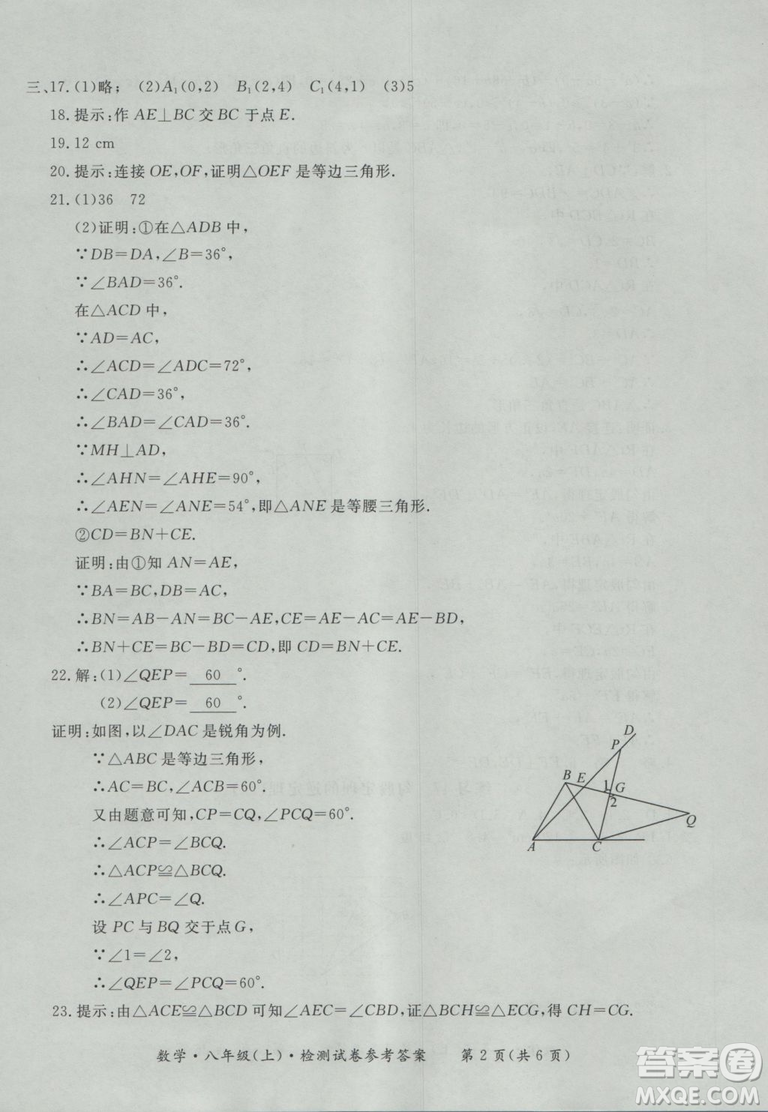 三、17.(1)略；　(2)A₁(0,2)　B₁(2,4)　C₁(4,1)　(3)5
18.提示:作 AE⊥BC 交 BC 于点 E.
19.12 cm
20.提示:连接 OE,OF,证明△OEF 是等边三角形.
21.(1)36　72
(2)证明:①在△ADB 中,
∵DB=DA,∠B=36°,
∵∠BAD=36°.
在△ACD 中,
∵AD=AC,
∴∠ACD=∠ADC=72°,
∴∠CAD=36°.
∴∠BAD=∠CAD=36°.
∵MH⊥AD,
∴∠AHN=∠AHE=90°,
∴∠AEN=∠ANE=54°,即△ANE 是等腰三角形.
②CD=BN+CE.
证明:由①知 AN=AE,
∵BA=BC,DB=AC,
∴BN=AB-AN=BC-AE,CE=AE-AC=AE-BD,
∴BN+CE=BC-BD=CD,即 CD=BN+CE.
22.解:(1)∠QEP= 60 °.
(2)∠QEP= 60 °.
证明:如图,以∠DAC 是锐角为例.
∵△ABC 是等边三角形,
∴AC=BC,∠ACB=60°.
又由题意可知,CP=CQ,∠PCQ=60°.
∴∠ACP=∠BCQ.
∴△ACP≌△BCQ.
∴∠APC=∠BQC.
设 PC 与 BQ 交于点 G,
∵∠1=∠2,
∴∠QEP=∠PCQ=60°.
D
P
B
E
1
G
2
Q
A
C
23.提示:由△ACE≌△BCD 可知∠AEC=∠CBD,证△BCH≌△ECG,得 CH=CG.
数学·八年级(上)·检测试卷参考答案　第 2 页(共 6 页)
答案圈
MXQE.COM